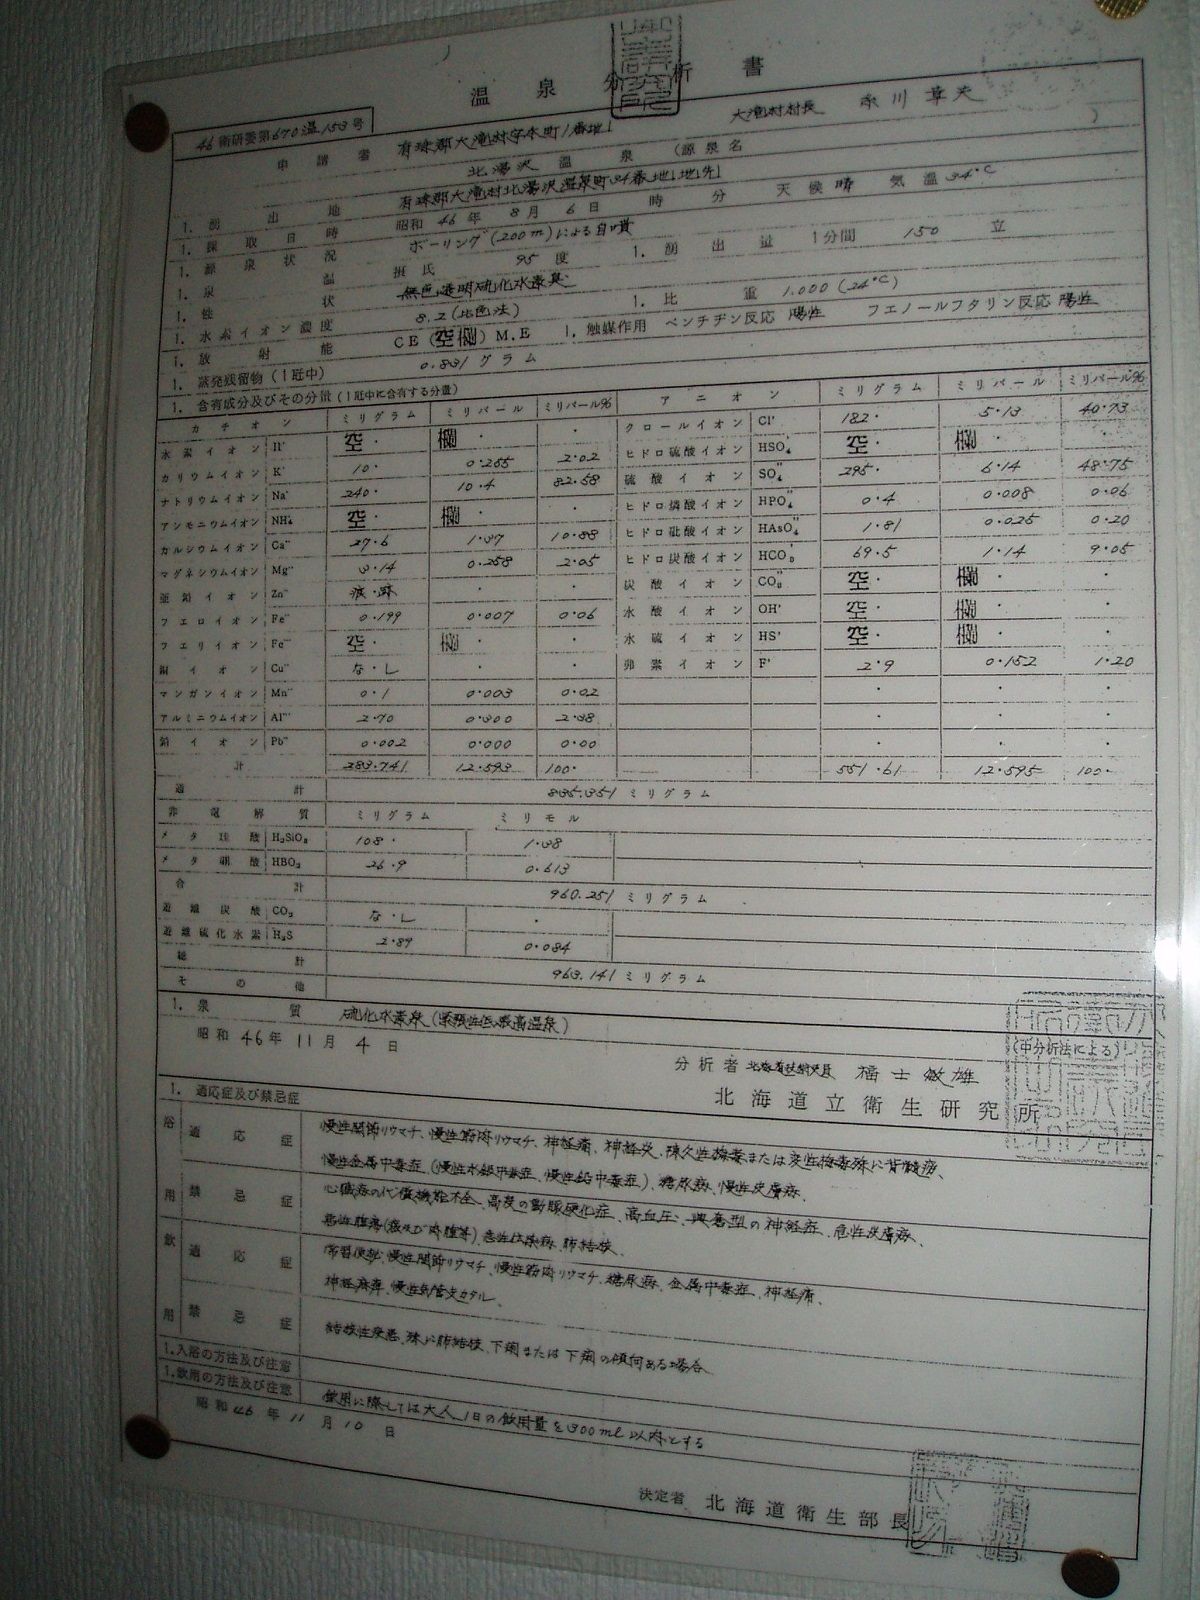 温泉分析書
46衛研委第670温153号
申請者 有珠郡大滝村字本町1番地1 大滝村村長 糸川 章夫
北湯沢 温泉 (源泉名 )
1. 湧出地 有珠郡大滝村北湯沢温泉町34番地1地先
1. 採取日時 昭和46年8月6日 時 分 天候 晴 気温 34°C
1. 源泉状況 ボーリング(200m)による自噴
1. 泉温 摂氏 95度 1. 湧出量 1分間 150 立
1. 性状 無色透明硫化水素臭
1. 水素イオン濃度 8.2(比色法) 1. 比重 1.000(24°C)
1. 放射能 CE(空欄)M.E 1. 触媒作用 ベンチヂン反応 陽性 フエノールフタリン反応 陽性
1. 蒸発残留物(1瓩中) 0.831グラム
1. 含有成分及びその分量(1瓩中に含有する分量)
カチオン ミリグラム ミリバール ミリバール% アニオン ミリグラム ミリバール ミリバール%
水素イオン H˙ 空・欄・ ・ クロールイオン Cl' 182. 5.13 40.73
カリウムイオン K˙ 10. 0.255 2.02 ヒドロ硫酸イオン HSO₄' 空・欄・ ・
ナトリウムイオン Na˙ 240. 10.4 82.58 硫酸イオン SO₄'' 295. 6.14 48.75
アンモニウムイオン NH₄˙ 空・欄・ ヒドロ燐酸イオン HPO₄'' 0.4 0.008 0.06
カルシウムイオン Ca¨ 27.6 1.37 10.88 ヒドロ砒酸イオン HAsO₄'' 1.81 0.025 0.20
マグネシウムイオン Mg¨ 3.14 0.258 2.05 ヒドロ炭酸イオン HCO₃' 69.5 1.14 9.05
亜鉛イオン Zn¨ 痕・跡 ・ ・ 炭酸イオン CO₃'' 空・欄・ ・
フエロイオン Fe¨ 0.199 0.007 0.06 水酸イオン OH' 空・欄・ ・
フエリイオン Fe 空・欄・ ・ 水硫イオン HS' 空・欄・ ・
銅イオン Cu¨ な・し ・ ・ 弗素イオン F' 2.9 0.152 1.20
マンガンイオン Mn¨ 0.1 0.003 0.02 ・ ・ ・
アルミニウムイオン Al 2.70 0.300 2.38 ・ ・ ・
鉛イオン Pb¨ 0.002 0.000 0.00 ・ ・ ・
計 283.741 12.593 100. 551.61 12.595 100.
通計 835.351 ミリグラム
非電解質 ミリグラム ミリモル
メタ珪酸 H₂SiO₃ 108. 1.38
メタ硼酸 HBO₂ 26.9 0.613
合計 960.251 ミリグラム
遊離炭酸 CO₂ な・し ・
遊離硫化水素 H₂S 2.89 0.084
総計 963.141 ミリグラム
その他
1. 泉質 硫化水素泉(緊張性低張高温泉)
昭和46年11月4日 (中分析法による)
分析者 北海道技術吏員 福士敏雄
北海道立衛生研究所
1. 適応症及び禁忌症
浴用 適応症 慢性関節リウマチ、慢性筋肉リウマチ、神経痛、神経炎、陳久性梅毒または変性梅毒殊に脊髄癆、
慢性金属中毒症(慢性水銀中毒症、慢性鉛中毒症)、糖尿病、慢性皮膚病、
禁忌症 心臓病の代償機能不全、高度の動脈硬化症、高血圧、興奮型の神経症、急性皮膚病、
悪性腫瘍(癌及び肉腫等)、急性伝染病、肺結核、
飲用 適応症 常習便秘、慢性関節リウマチ、慢性筋肉リウマチ、糖尿病、金属中毒症、神経痛、
神経麻痺、慢性気管支カタル、
禁忌症 結核性疾患、殊に肺結核、下痢または下痢の傾向ある場合、
1.入浴の方法及び注意
1.飲用の方法及び注意 飲用に際しては大人、1日の飲用量を300ml以内とする
昭和46年11月10日
決定者 北海道衛生部長